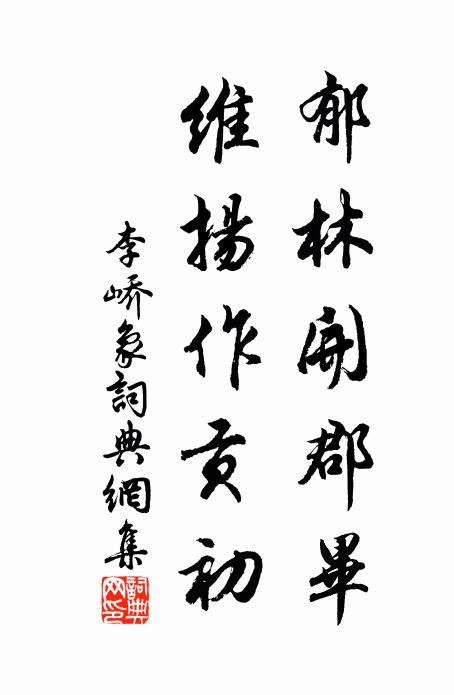 郁林開郡畢
維揚作貢初
李嶠象詞典網集
詞典網印